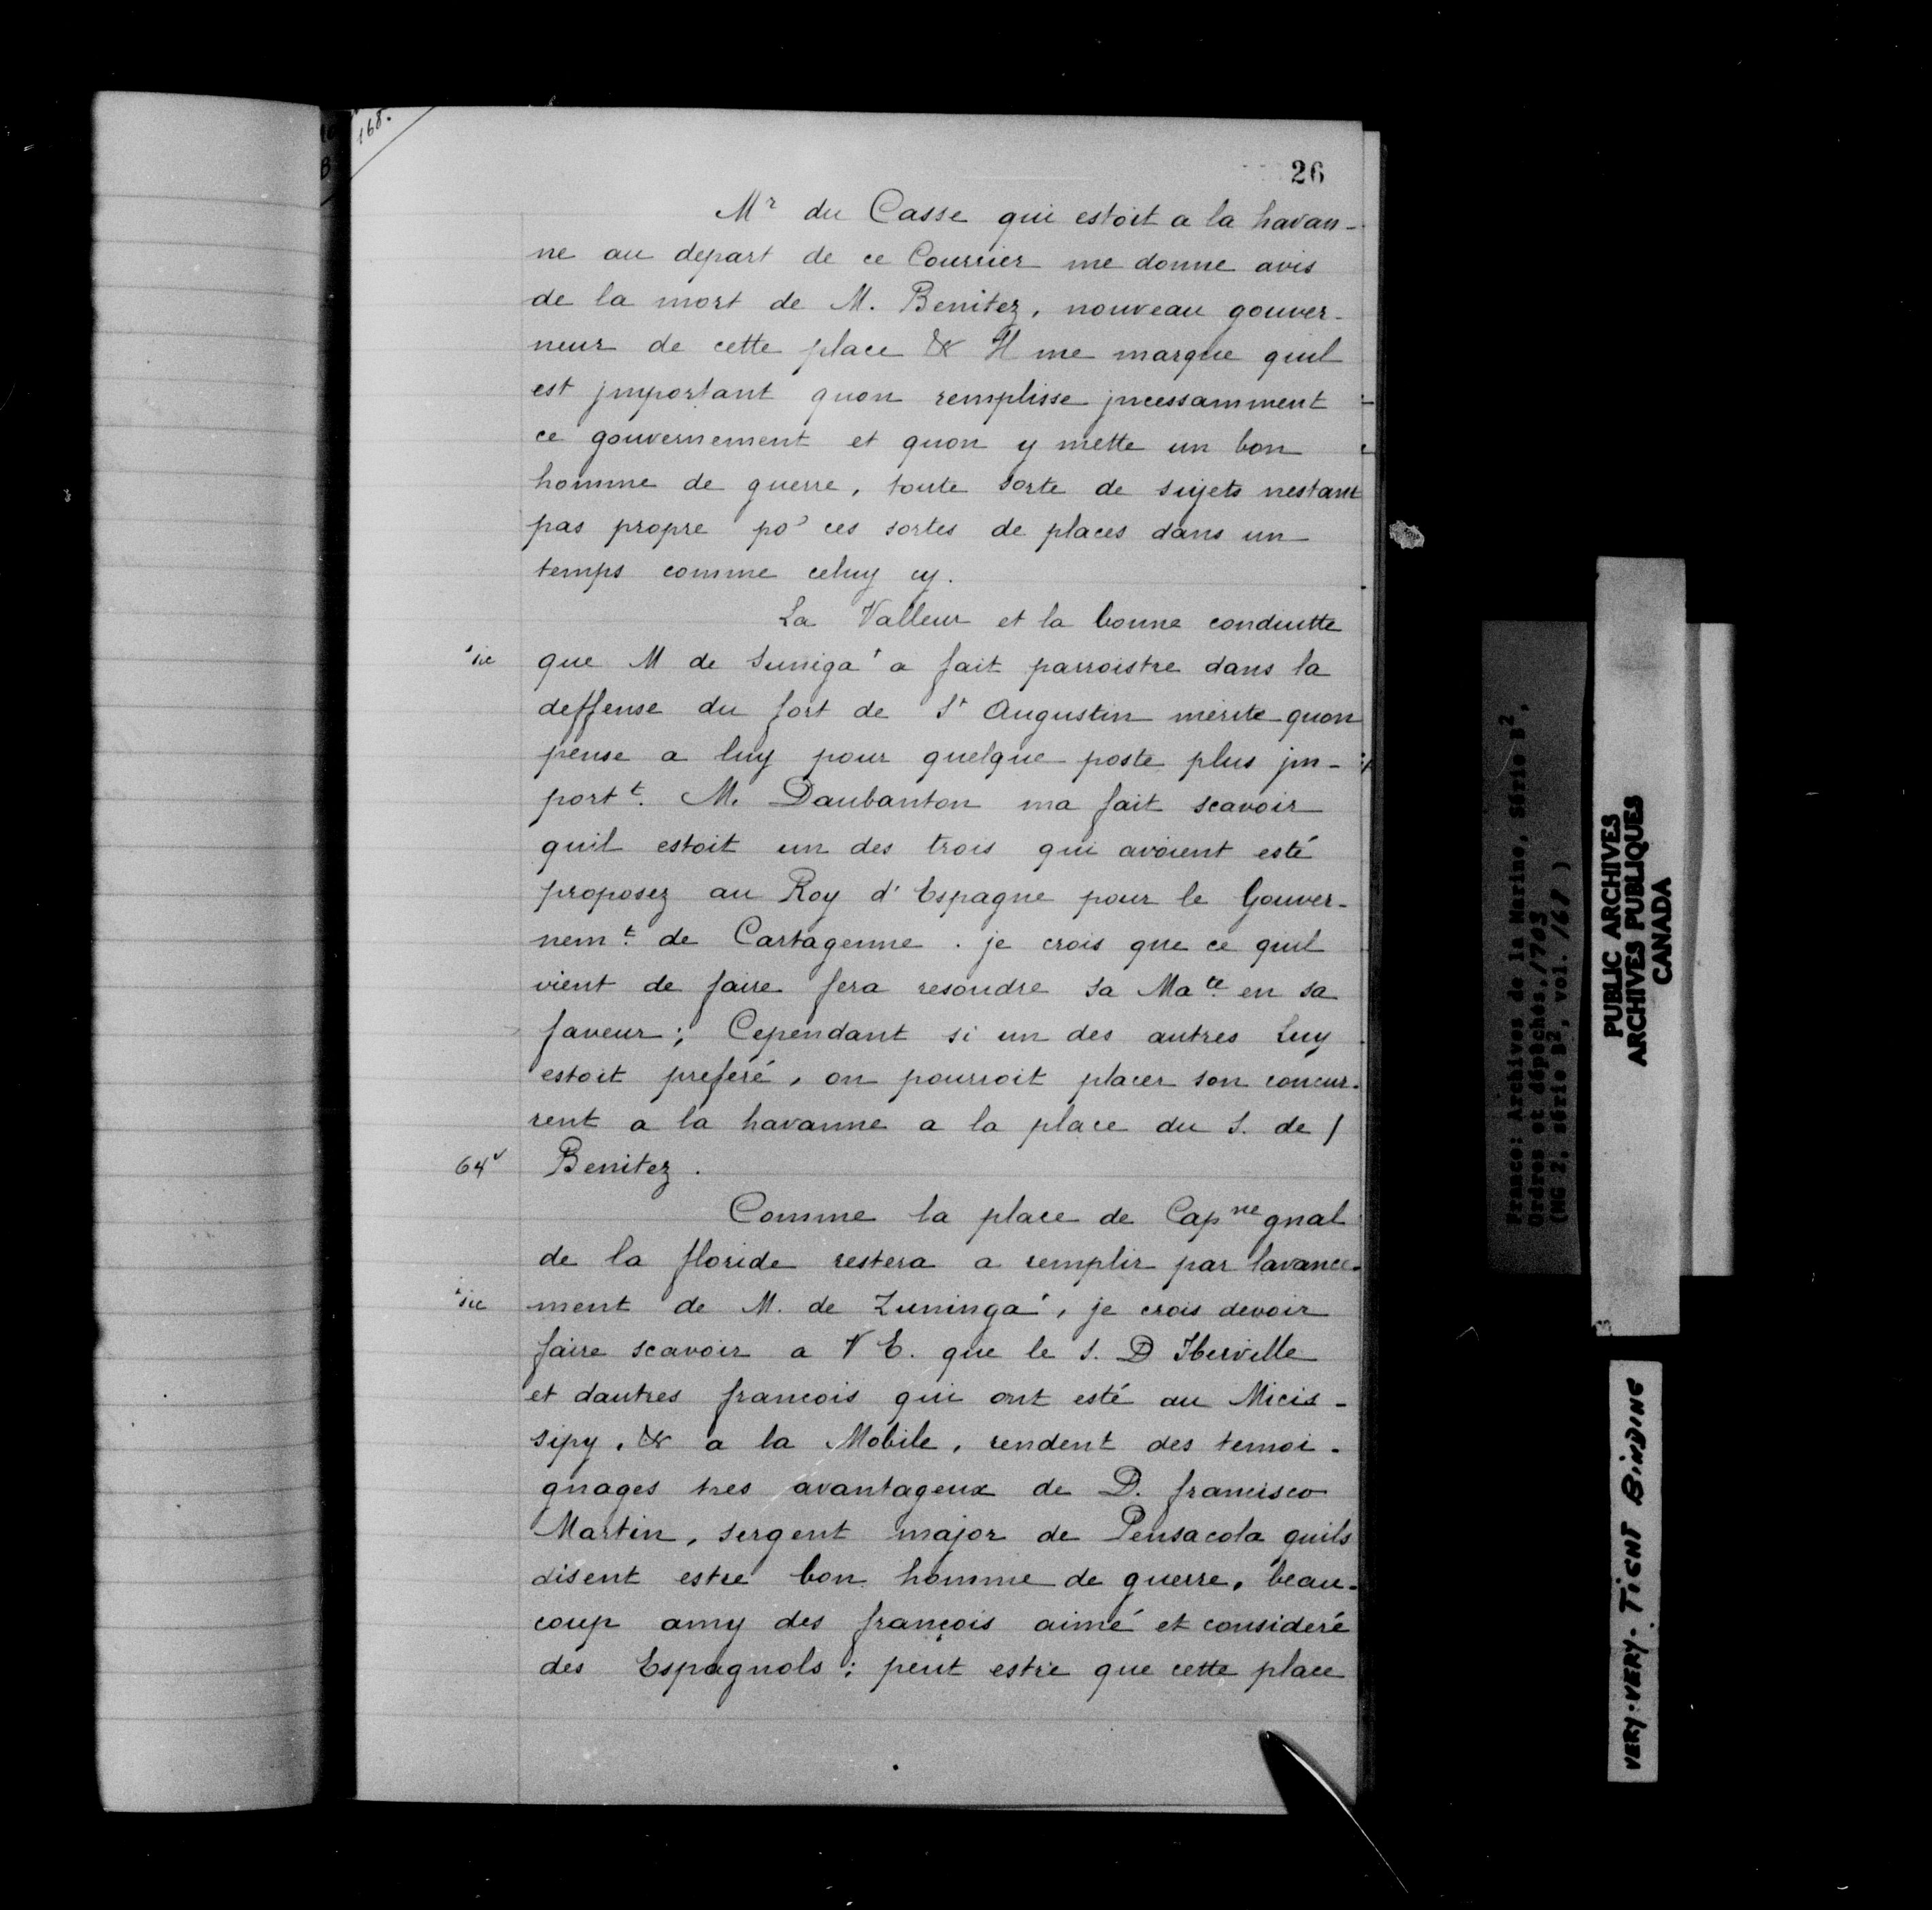 168.
26
Mr du Casse qui estoit a la havan-
ne au depart de ce Courrier me donne avis
de la mort de M. Benitez, nouveau gouver-
neur de cette place & Il me marque quil
est jmportant quon remplisse jncessamment
ce gouvernement et quon y mette un bon
homme de guerre, toute sorte de sujets nestant
pas propre po' ces sortes de places dans un
temps comme celuy cy.
La Valleur et la bonne conduitte
'sic que M de Suniga' a fait parroistre dans la
deffense du fort de St Augustin merite quon
pense a luy pour quelque poste plus jm-
portt. M. Daubanton ma fait scavoir
quil estoit un des trois qui avoient esté
proposez au Roy d'Espagne pour le Gouver-
nemt. de Cartagenne. je crois que ce quil
vient de faire fera resoudre sa Mate. en sa
faveur; Cependant si un des autres Luy
estoit preferé, on pourroit placer son concur-
rent a la havanne a la place du S. de /
64v Benitez.
Comme la place de Capne gnal
de la floride restera a remplir par lavance-
'sic ment de M. de Zuninga', je crois devoir
faire scavoir a V E. que le S. D Iberville
et dautres francois qui ont esté au Micis-
sipy, & a la Mobile, rendent des temoi-
gnages tres avantageux de D. francisco
Martin, sergent major de Pensacola quils
disent estre bon homme de guerre, beau-
coup amy des françois aimé et consideré
des Espagnols; peut estre que cette place
France: Archives de la Marine, Série B2,
Ordres et dépêches, 1703
(MG 2, série B2, vol. 168)
PUBLIC ARCHIVES
ARCHIVES PUBLIQUES
CANADA
VERY-VERY-TIGHT BINDING